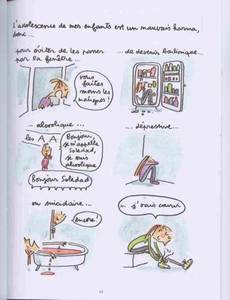 L'adolescence de mes enfants est un mauvais karma,
donc...
pour éviter de les passer
par la fenêtre...
... de devenir boulimique...
vous
faites
moins les
malignes!
... alcoolique...
... dépressive...
les AA
Bonjour,
je m'appelle
Soledad,
je suis
alcoolique
Bonjour Soledad
ou suicidaire...
encore!
... je vais courir